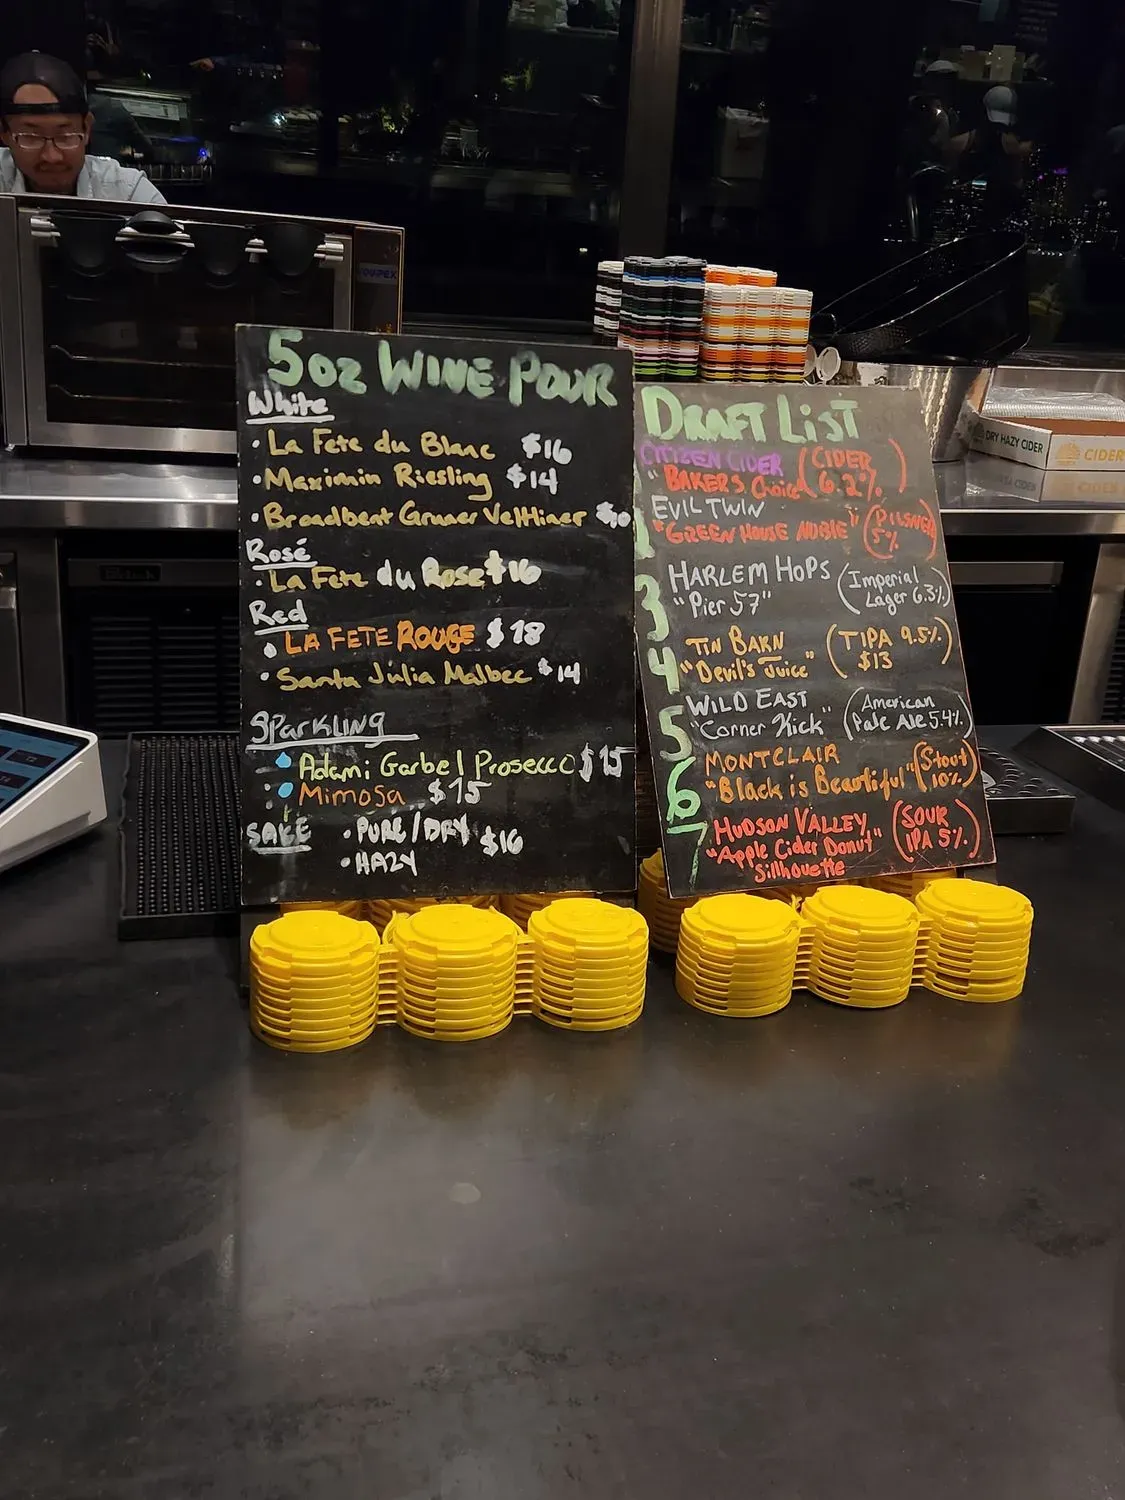 5oz WINE POUR
White
• La Fete du Blanc $16
• Maximin Riesling $14
• Broadbent Gruner Veltliner
Rosé
• La Fete du Rose $16
Red
• LA FETE ROUGE $18
• Santa Julia Malbec $14
SPARKLING
• Adami Garbel Prosecco $15
• Mimosa $15
SAKE • PURE/DRY $16
• HAZY
DRAFT LIST
CITIZEN CIDER (CIDER
"BAKERS Choice 6.2%)
EVIL TWIN
"GREEN HOUSE NOBLE" (PILSNER
5%)
3 HARLEM HOPS (Imperial
"Pier 57" Lager 6.3%)
4 TIN BARN (TIPA 9.5%)
"Devil's Juice" $13
5 WILD EAST (American
"Corner Kick" Pale Ale 5.4%)
6 MONTCLAIR (Stout
"Black is Beautiful" 10%)
7 HUDSON VALLEY (SOUR
"Apple Cider Donut" IPA 5%)
Sillhouette
DRY HAZY CIDER
CIDER